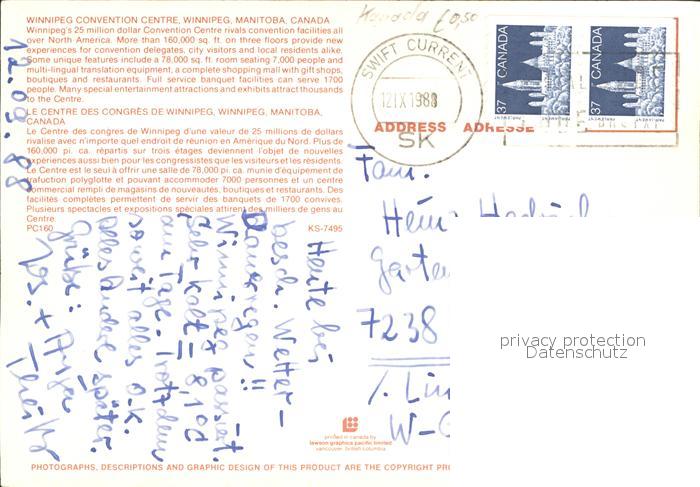 WINNIPEG CONVENTION CENTRE, WINNIPEG, MANITOBA, CANADA
Winnipeg's 25 million dollar Convention Centre rivals convention facilities all
over North America. More than 160,000 sq. ft. on three floors provide new
experiences for convention delegates, city visitors and local residents alike.
Some unique features include a 78,000 sq. ft. room seating 7,000 people and
multi-lingual translation equipment, a complete shopping mall with gift shops,
boutiques and restaurants. Full service banquet facilities can serve 1700
people. Many special entertainment attractions and exhibits attract thousands
to the Centre.
LE CENTRE DES CONGRÈS DE WINNIPEG, WINNIPEG, MANITOBA,
CANADA
Le Centre des congres de Winnipeg d'une valeur de 25 millions de dollars
rivalise avec n'importe quel endroit de réunion en Amérique du Nord. Plus de
160,000 pi. ca. répartis sur trois étages deviennent l'objet de nouvelles
expériences aussi bien pour les congressistes que les visiteurs et les résidents.
Le Centre est le seul à offrir une salle de 78,000 pi. ca. munie d'équipement de
trafuction polyglotte et pouvant accommoder 7000 personnes et un centre
commercial rempli de magasins de nouveautés, boutiques et restaurants. Des
facilités complètes permettent de servir des banquets de 1700 convives.
Plusieurs spectacles et expositions spéciales attirent des milliers de gens au
Centre.
PC160 KS-7495
12.09.88
Heute bei
besch. Wetter -
Dauerregen!!
Winnipeg passiert.
Sehr kalt = 8,10C
am Tage. Trotzdem
soweit alles o.k.
alles andere später.
Grüße:
Kanada £0,50
SWIFT CURRENT
12 IX 1988
SK
CANADA
37
PARLIAMENT
PARLEMENT
CANADA
37
PARLIAMENT
PARLEMENT
ADDRESS ADRESSE
Fam.
Garten
7238
privacy protection
Datenschutz
printed in canada by
lawson graphics pacific limited
vancouver, british columbia
PHOTOGRAPHS, DESCRIPTIONS AND GRAPHIC DESIGN OF THIS PRODUCT ARE THE COPYRIGHT PR